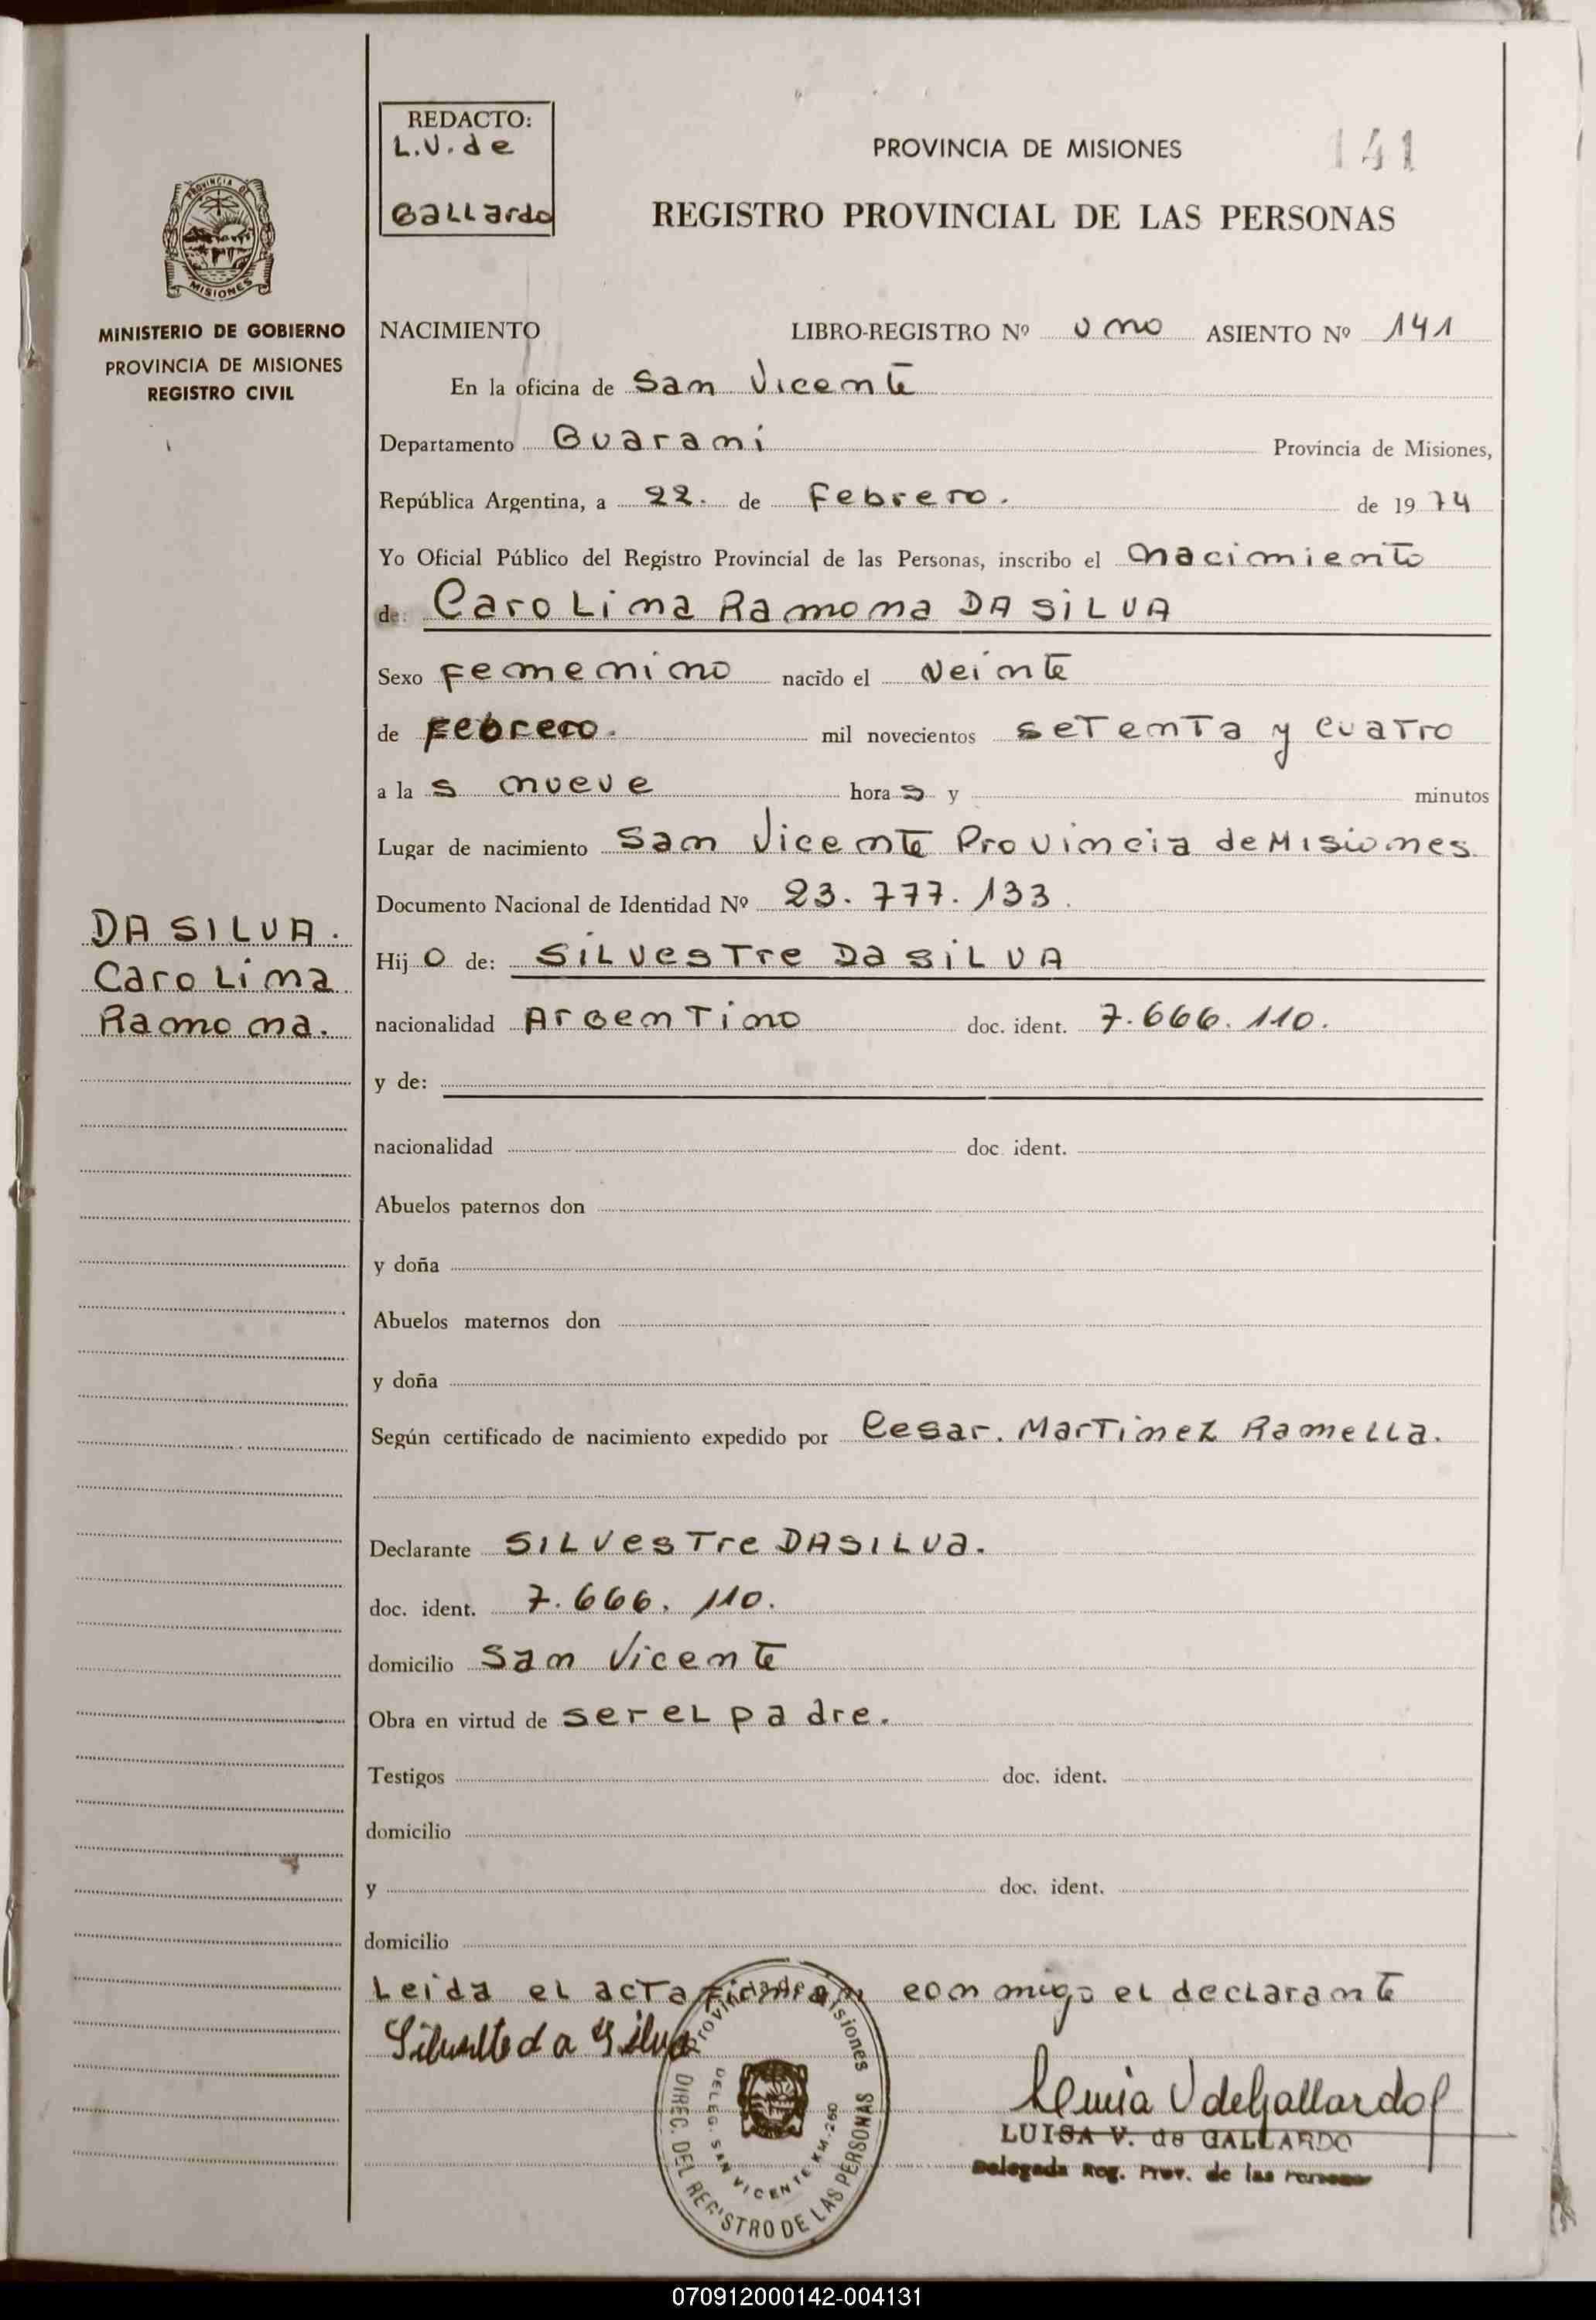 REDACTO:
L.V. de
Gallardo
PROVINCIA DE MISIONES
141
REGISTRO PROVINCIAL DE LAS PERSONAS
PROVINCIA DE
MISIONES
MINISTERIO DE GOBIERNO
PROVINCIA DE MISIONES
REGISTRO CIVIL
NACIMIENTO LIBRO-REGISTRO Nº uno ASIENTO Nº 141
En la oficina de San Vicente
Departamento Guarani Provincia de Misiones,
República Argentina, a 22. de Febrero. de 1974
Yo Oficial Público del Registro Provincial de las Personas, inscribo el nacimiento
de: Carolina Ramona DA SILVA
Sexo Femenino nacido el veinte
de Febrero. mil novecientos setenta y cuatro
a las nueve horas y minutos
Lugar de nacimiento San Vicente Provincia de Misiones
Documento Nacional de Identidad Nº 23.777.133.
DA SILVA.
Carolina
Ramona.
Hijo de: SILVESTRE DA SILVA
nacionalidad Argentino doc. ident. 7.666.110.
y de:
nacionalidad doc. ident.
Abuelos paternos don
y doña
Abuelos maternos don
y doña
Según certificado de nacimiento expedido por Cesar. Martinez Ramella.
Declarante SILVESTRE DASILVA.
doc. ident. 7.666.110.
domicilio San Vicente
Obra en virtud de ser el padre.
Testigos doc. ident.
domicilio
y doc. ident.
domicilio
Leida el acta firman conmigo el declarante
da Silva
Provincia de Misiones
DIREC. DEL REGISTRO DE LAS PERSONAS
DELEG. SAN VICENTE KM. 260
V de Gallardo
LUISA V. de GALLARDO
Delegada Reg. Prov. de las Personas
070912000142-004131